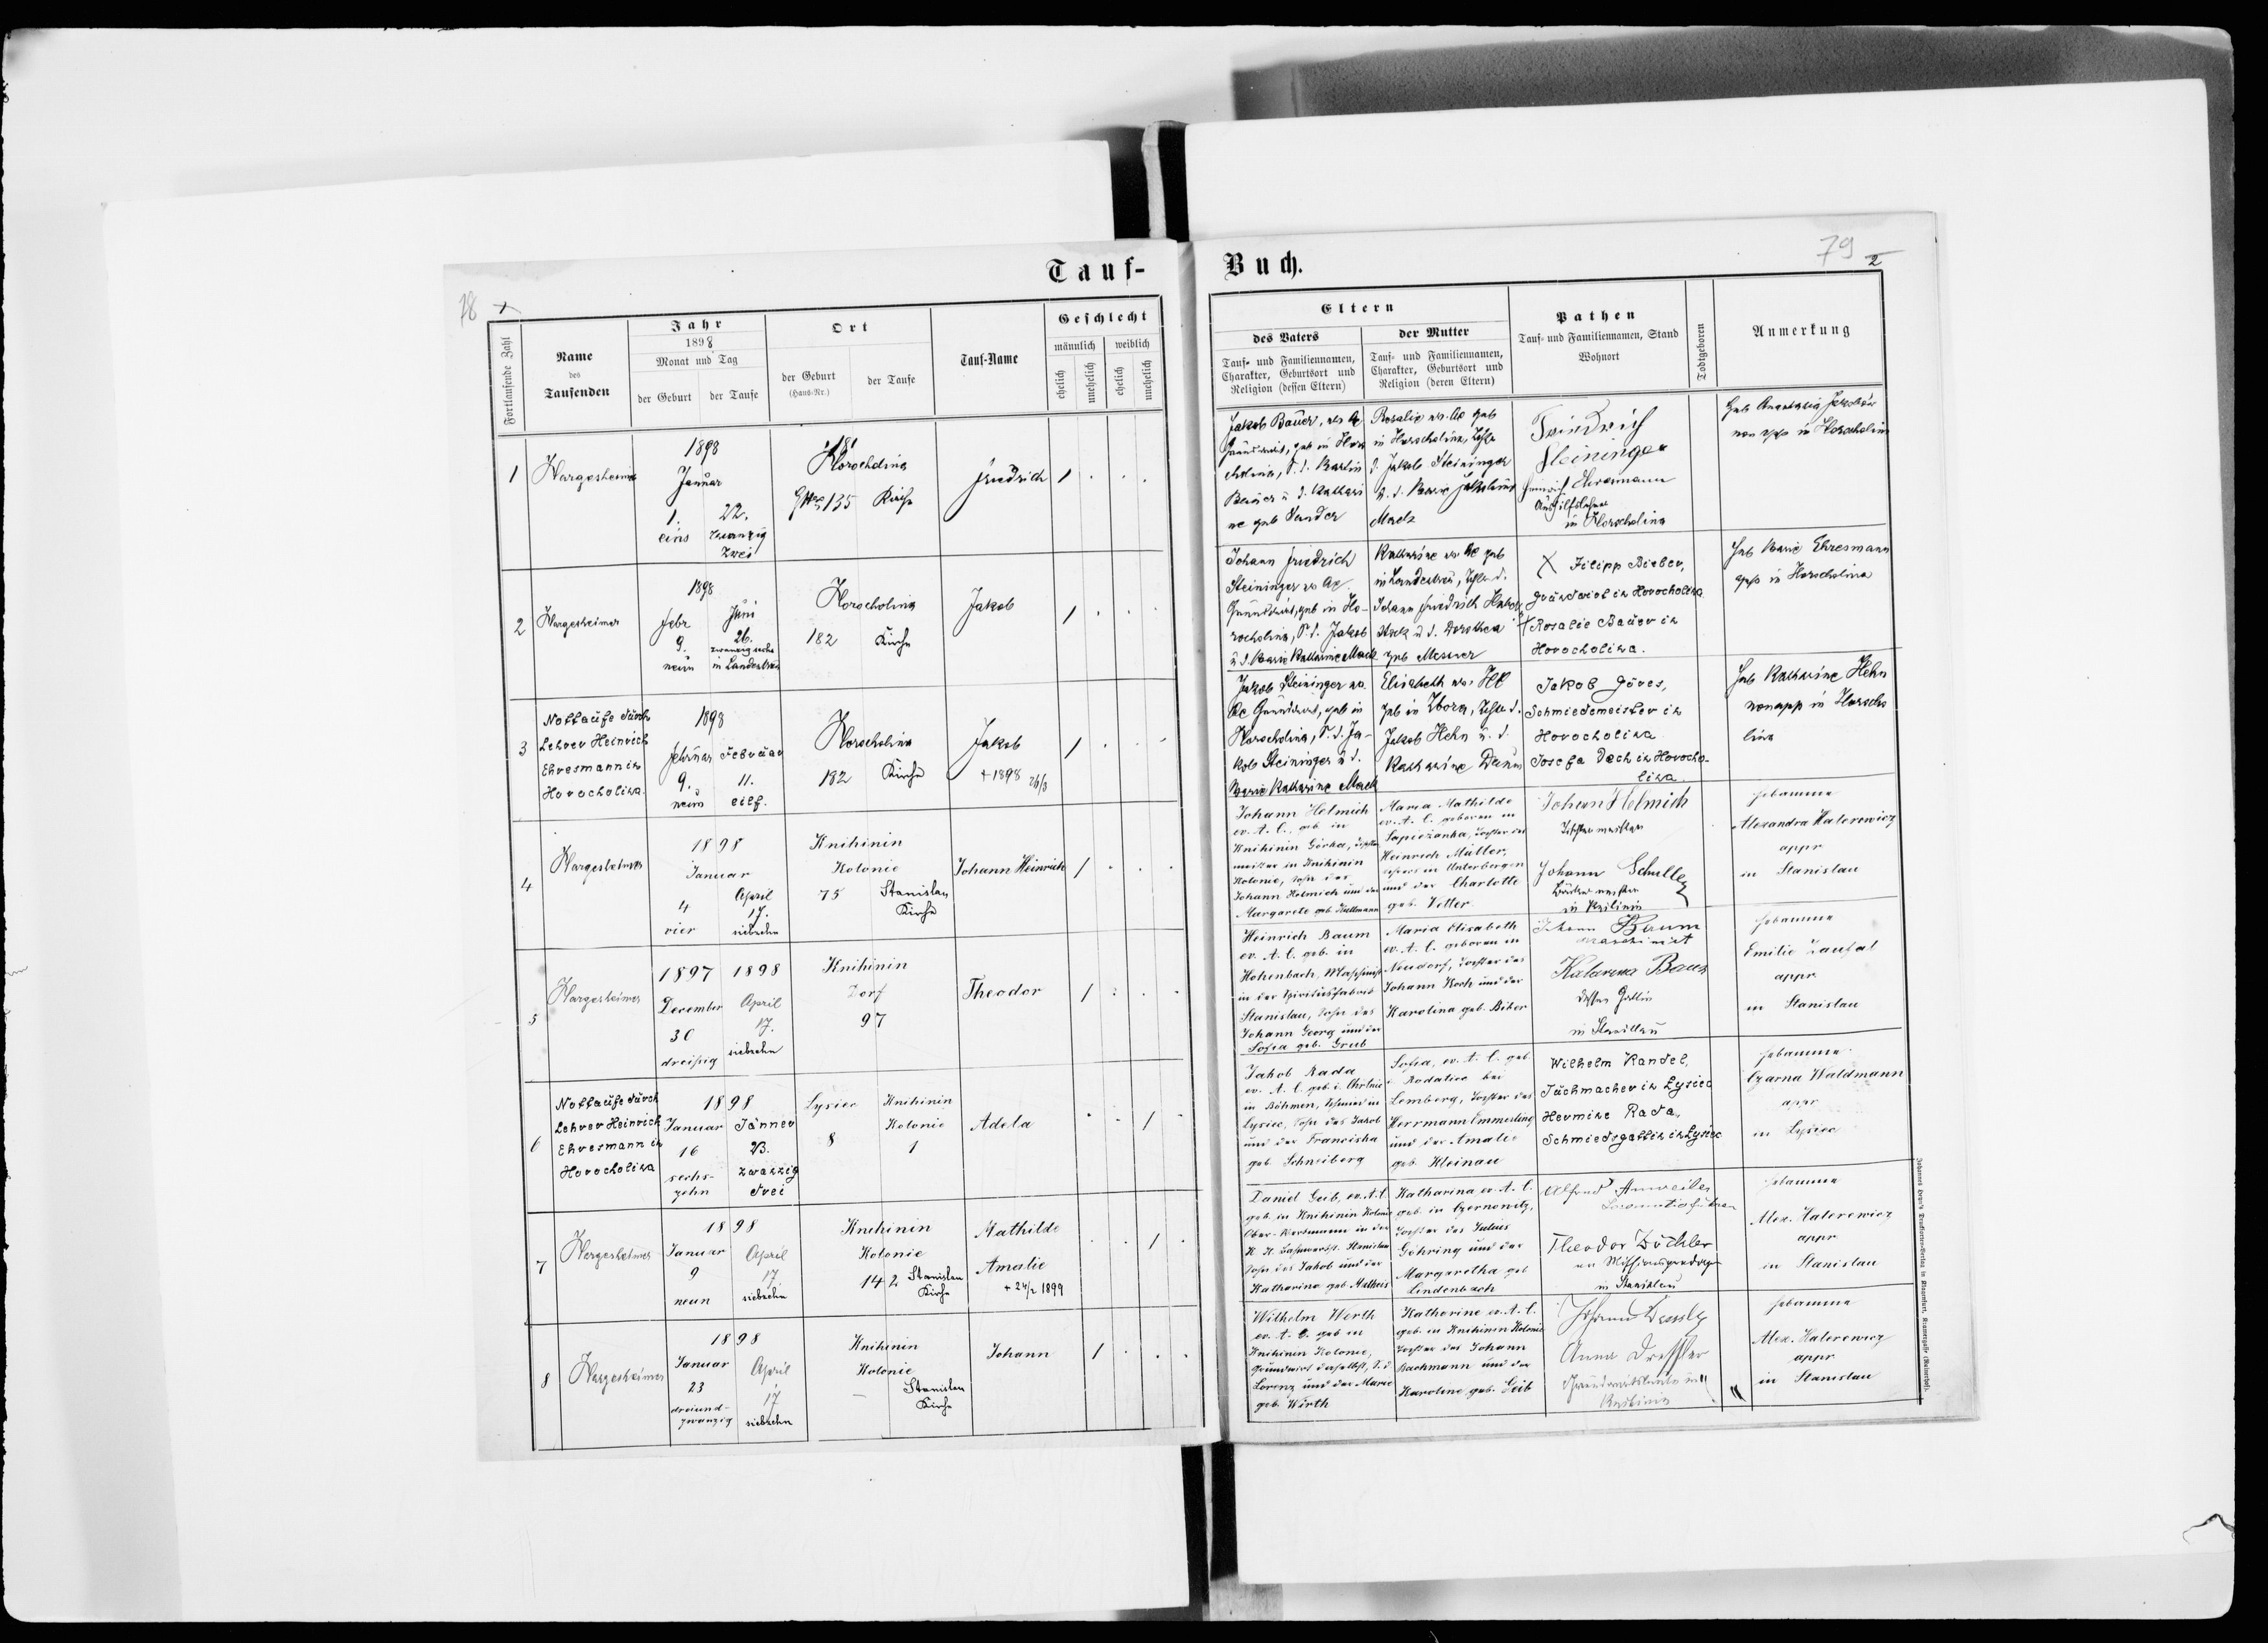 Tauf-
78
Fortlaufende Zahl
Name
des
Taufenden
Jahr
1898
Monat und Tag
der Geburt
der Taufe
Ort
der Geburt
(Haus-Nr.)
der Taufe
Tauf-Name
Geschlecht
männlich
weiblich
ehelich
unehelich
ehelich
unehelich
1
Hargesheimer
1898
Januar
1.
eins
22.
zwanzig
zwei
Horocholina
135
Kirche
Friedrich
1
2
Hargesheimer
1898
Febr
9.
neun
Juni
26.
zwanzig sechs
in Landestreu
Horocholina
182
Kirche
Jakob
1
3
Nottaufe durch
Lehrer Heinrich
Ehresmann in
Horocholina
1898
Februar
9.
neun
Februar
11.
eilf.
Horocholina
182
Kirche
Jakob
+ 1898 26/3
1
4
Hargesheimer
1898
Januar
4
vier
April
17.
siebzehn
Knihinin
Kolonie
75
Stanislau
Kirche
Johann Heinrich
1
5
Hargesheimer
1897
December
30
dreißig
1898
April
17.
siebzehn
Knihinin
Dorf
97
Theodor
1
6
Nottaufe durch
Lehrer Heinrich
Ehresmann in
Horocholina
1898
Januar
16
sechs-
zehn
Jänner
23.
zwanzig
drei
Lysiec
8
Knihinin
Kolonie
1
Adela
1
7
Hargesheimer
1898
Januar
9
neun
April
17
siebzehn
Knihinin
Kolonie
142
Stanislau
Kirche
Mathilde
Amalie
+ 24/2 1899
1
8
Hargesheimer
1898
Januar
23
dreiund-
zwanzig
April
17
siebzehn
Knihinin
Kolonie
Stanislau
Kirche
Johann
1
Buch.
79
2
Eltern
des Vaters
Tauf- und Familiennamen,
Charakter, Geburtsort und
Religion (dessen Eltern)
der Mutter
Tauf- und Familiennamen,
Charakter, Geburtsort und
Religion (deren Eltern)
Pathen
Tauf- und Familiennamen, Stand
Wohnort
Todtgeboren
Anmerkung
Jakob Bauer,
Grundwirt, geb in Horo
cholina, S. d. Martin
Bauer u d. Kathari
ne geb Sander
Rosalie
in Horocholina, Tochter
d. Jakob Steininger
u. d. Marie
Mack
Friedrich
Steininger
Heinrich Ehresmann
Aushilfslehrer
in Horocholina
Heb Anastasia
in Horocholina
Johann Friedrich
Steininger
Grundwirt, geb in Ho-
rocholina, S. d. Jakob
u d. Marie Katharine Mack
Katharine
in Landestreu, Tochter d.
Johann Friedrich
u d. Dorothea
geb Messner
X Filipp Bieber,
Grundwirt in Horocholina
X Rosalie Bauer in
Horocholina.
Heb Marie Ehresmann
gepr in Horocholina
Jakob Steininger
Grundwirt, geb in
Horocholina, S. d. Ja-
kob Steininger u d.
Marie Katharine Mack
Elisabeth
geb in Zbora, Tochter d.
Jakob Hehn u. d.
Katharine Daum
Jakob Göres,
Schmiedemeister in
Horocholina
Josefa Dech in Horocho-
lina.
Heb Katharine Hehn
nonapp in Horocho
lina
Johann Helmich
ev. A. C., geb in
Knihinin Górka,
meister in Knihinin
Kolonie, Sohn des
Johann Helmich und der
Margarete geb. Kullmann
Maria Mathilde
ev. A. C. geboren in
Sapiezanka, Tochter des
Heinrich Müller,
in Unterbergen
und der Charlotte
geb. Vetter.
Johan Helmich
Johann Schulley
Bäckermeister
in Knihinin
Hebamme
Alexandra Halerewicz
appr
in Stanislau
Heinrich Baum
ev. A. C. geb. in
Hohenbach, Maschinist
in der Spiritusfabrik
Stanislau, Sohn des
Johann Georg und der
Sofia geb. Grub
Maria Elisabeth
ev. A. C. geboren in
Neudorf, Tochter des
Johann Koch und der
Karolina geb. Biker
Johann Baum
Maschinist
Katarena Baum
dessen Gattin
in Stanislau
Hebamme
Emilie Zaufal
appr.
in Stanislau
Jakob Rada
ev. A. C. geb. i.
in Böhmen, Schmied in
Lysiec, Sohn des Jakob
und der Franciska
geb. Schneiberg
Sofia, ev. A. C. geb.
i Rodatice bei
Lemberg, Tochter des
Herrmann Emmerling
und der Amalie
geb. Kleinau
Wilhelm Kandel,
Tuchmacher in Lysiec
Hermine Rada,
Schmiedsgattin in Lysiec
Hebamme
Czarna Waldmann
appr
in Lysiec
Daniel Geib, ev. A. C.
geb. in Knihinin Kolonie
Ober- in der
Stanislau
Sohn des Jakob und der
Katharina geb. Matheis
Katharina ev. A. C.
geb. in Czernowitz,
Tochter des Julius
Göhring und der
Margaretha geb
Lindenbach
Alfred
Locomotivführer
Theodor Zöckler
ev Missionsprediger
in Stanislau
Hebamme
Alex. Halerewicz
appr
in Stanislau
Wilhelm Werth
ev. A. C. geb in
Knihinin Kolonie,
Grundwirt daselbst, S. d
Lorenz und der Marie
geb. Wirth
Katharine ev. A. C.
geb. in Knihinin Kolonie
Tochter des Johann
Bachmann und der
Karoline geb. Geib
Johann
Anna Dressler
Grundwirtsleute in
Knihinin
Hebamme
Alex. Halerewicz
appr
in Stanislau